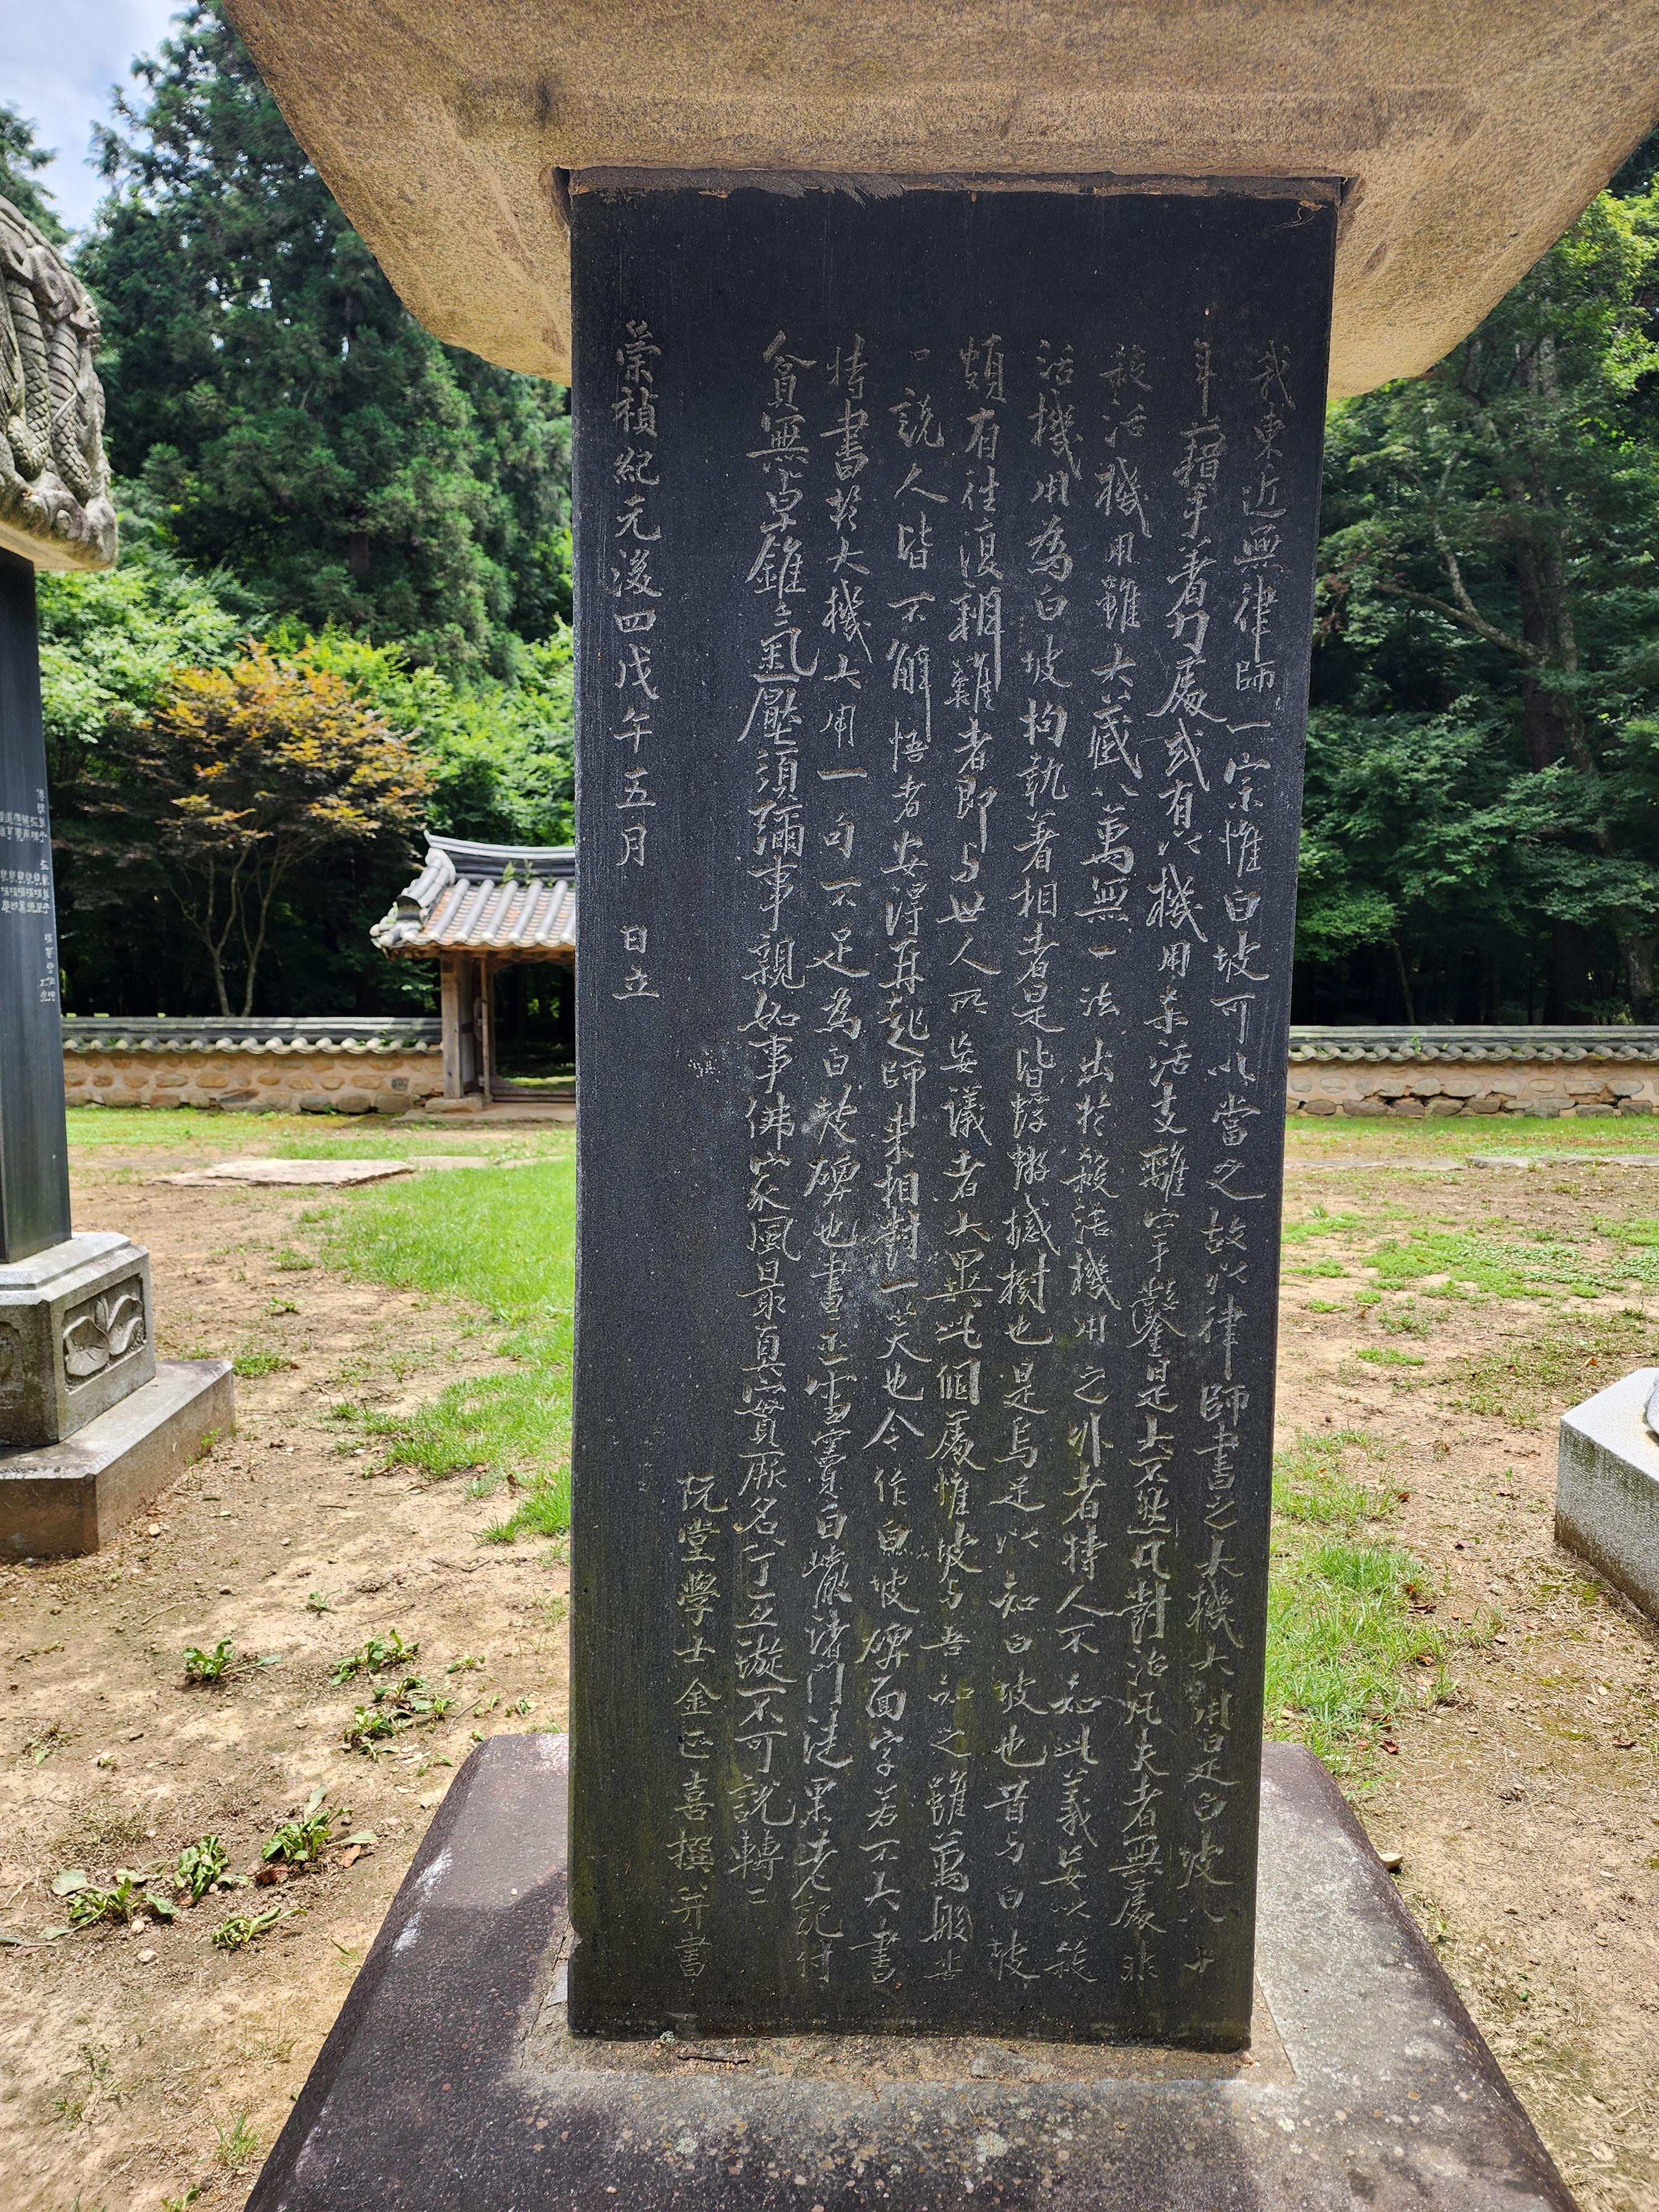 我東近無律師一宗惟白坡可以當之故以律師書之大機大用是白坡八十
年藉手著力處或有以機用殺活支離穿鑿是大不然凡對治凡夫者無處非
殺活機用雖大藏八萬無一法出於殺活機用之外者特人不知此義妄以殺
活機用為白坡拘執著相者是皆蜉蝣撼樹也是烏足以知白坡也昔与白坡
頗有往復辨難者即与世人所妄議者大異此個處惟坡与吾知之雖萬般苦
口說人皆不解悟者安得再起師來相對一笑也今作白坡碑面字若不大書
特書於大機大用一句不足為白坡碑也書示雪竇白巖諸門徒果老記付
貧無卓錐氣壓須彌事親如事佛家風最真實厥名兮亘璇不可說轉〻
阮堂學士金正喜撰并書
崇禎紀元後四戊午五月 日立